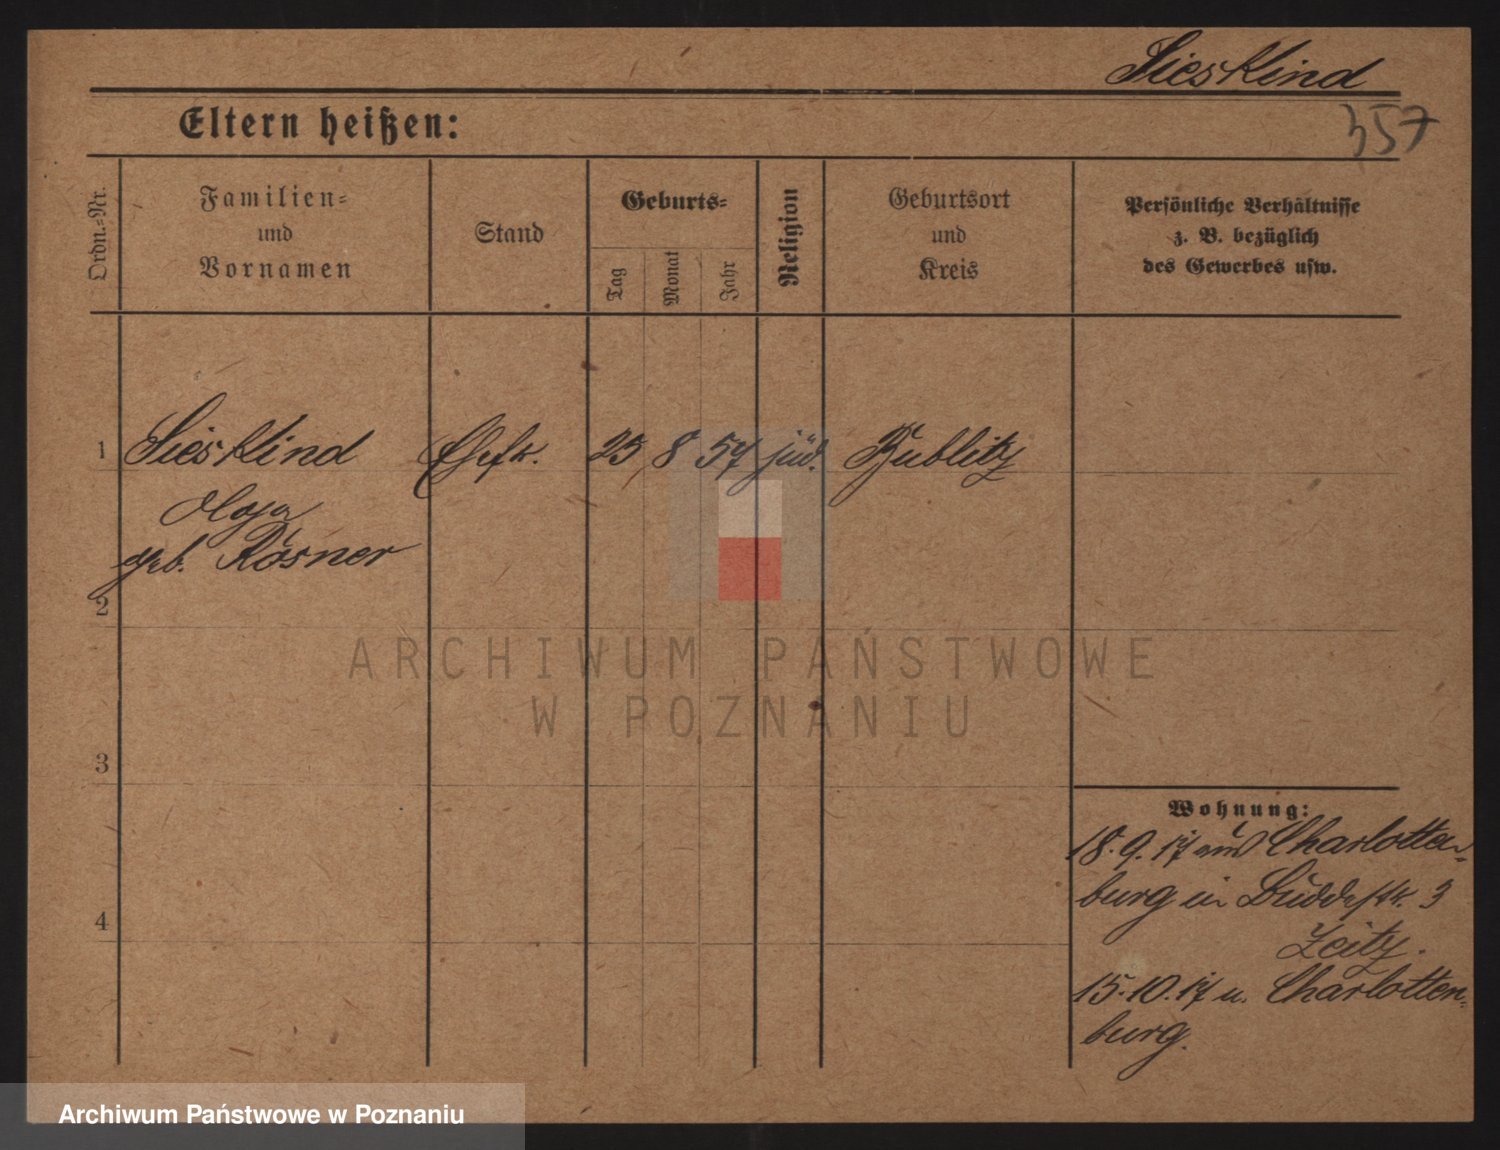 Sieskind
357
Eltern heißen:
Ordn.-Nr.
Familien-
und
Vornamen
Stand
Geburts-
Tag
Monat
Jahr
Religion
Geburtsort
und
Kreis
Persönliche Verhältnisse
z. B. bezüglich
des Gewerbes usw.
1 Sieskind Ehefr. 25 8 57 jüd. Bublitz
Olga
geb. Rosner
2
ARCHIWUM PAŃSTWOWE
W POZNANIU
3
Wohnung:
18.9.17 aus Charlotten-
burg in Buddestr. 3
4
Zeitz.
15.10.17 n. Charlotten-
burg.
Archiwum Państwowe w Poznaniu